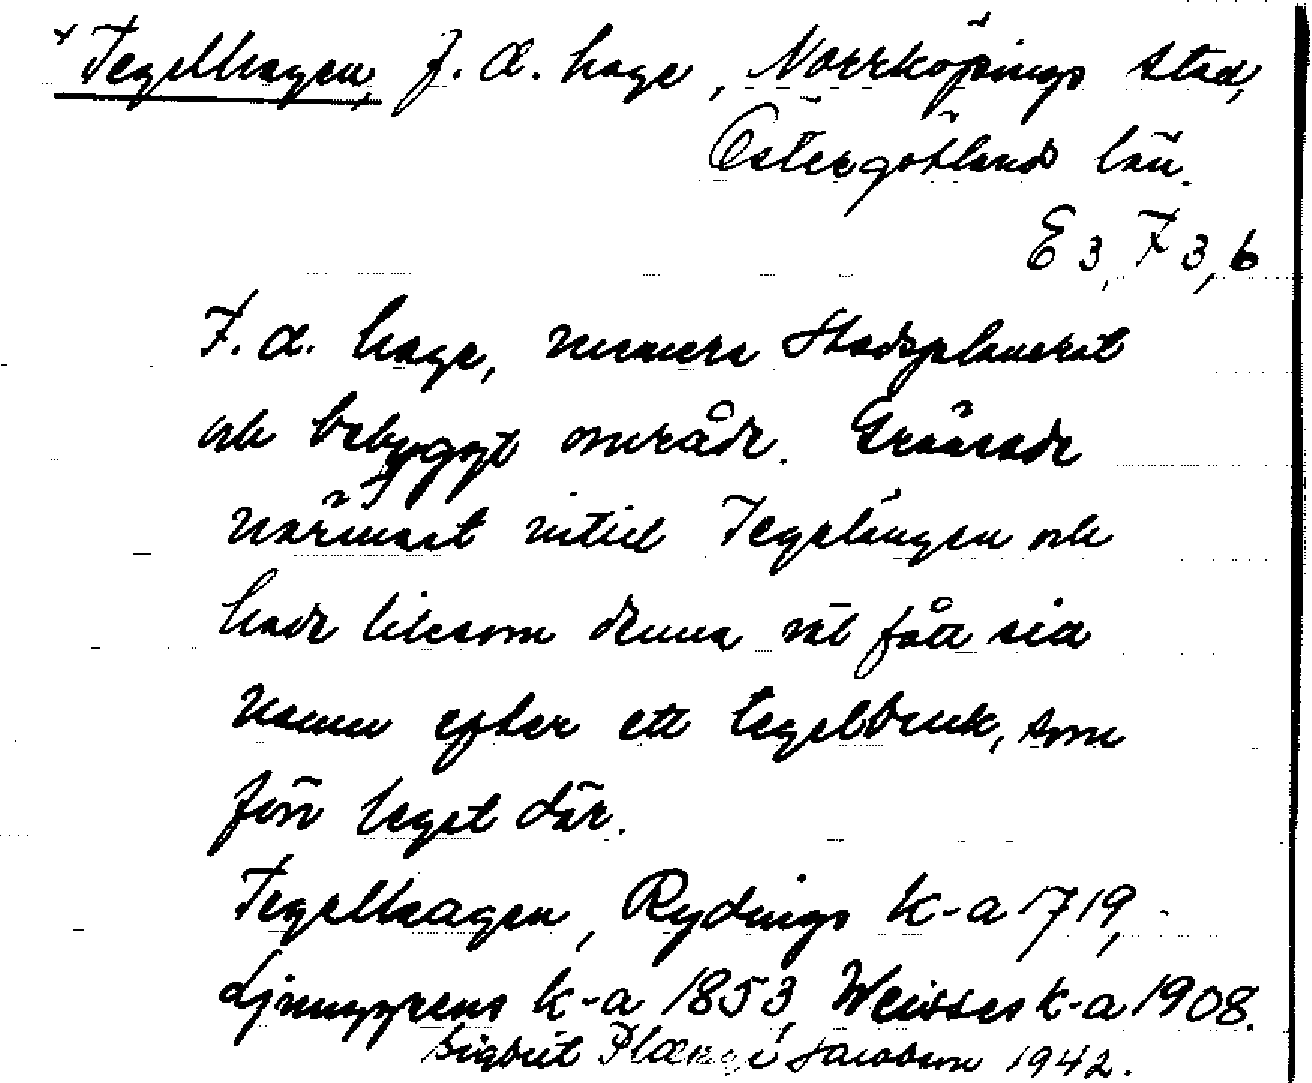 Tegelhagen, f. d. hage, Norrköpings stad,
Östergötlands län.
E 3, F 3, 6
F. d. hage, numera stadsplanerat
och bebyggt område. Gränsade
närmast intill Tegelängen och
hade liksom denna väl fått sitt
namn efter ett tegelbruk, som
förr legat där.
Tegelhagen, Rydings k-a 1719,
Ljunggrens k-a 1853, Weisses k-a 1908.
Sigbrit Jacobson 1942.